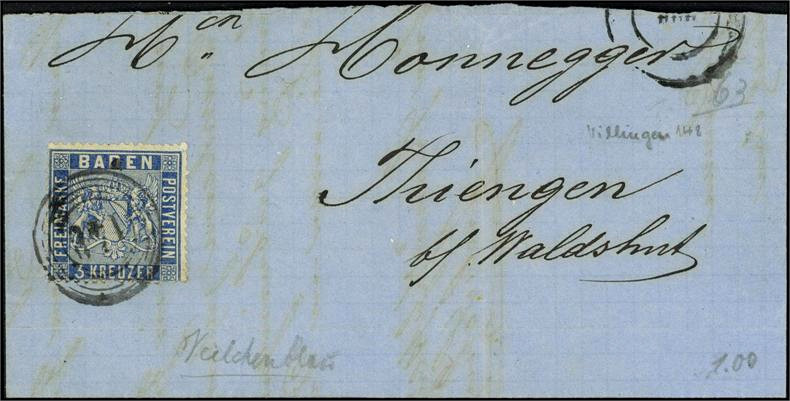 Hrn Honnegger
63
Villingen 148
Thiengen
b/ Waldshut
BADEN
FREIMARKE
POSTVEREIN
3 KREUZER
Veilchenblau
1.00